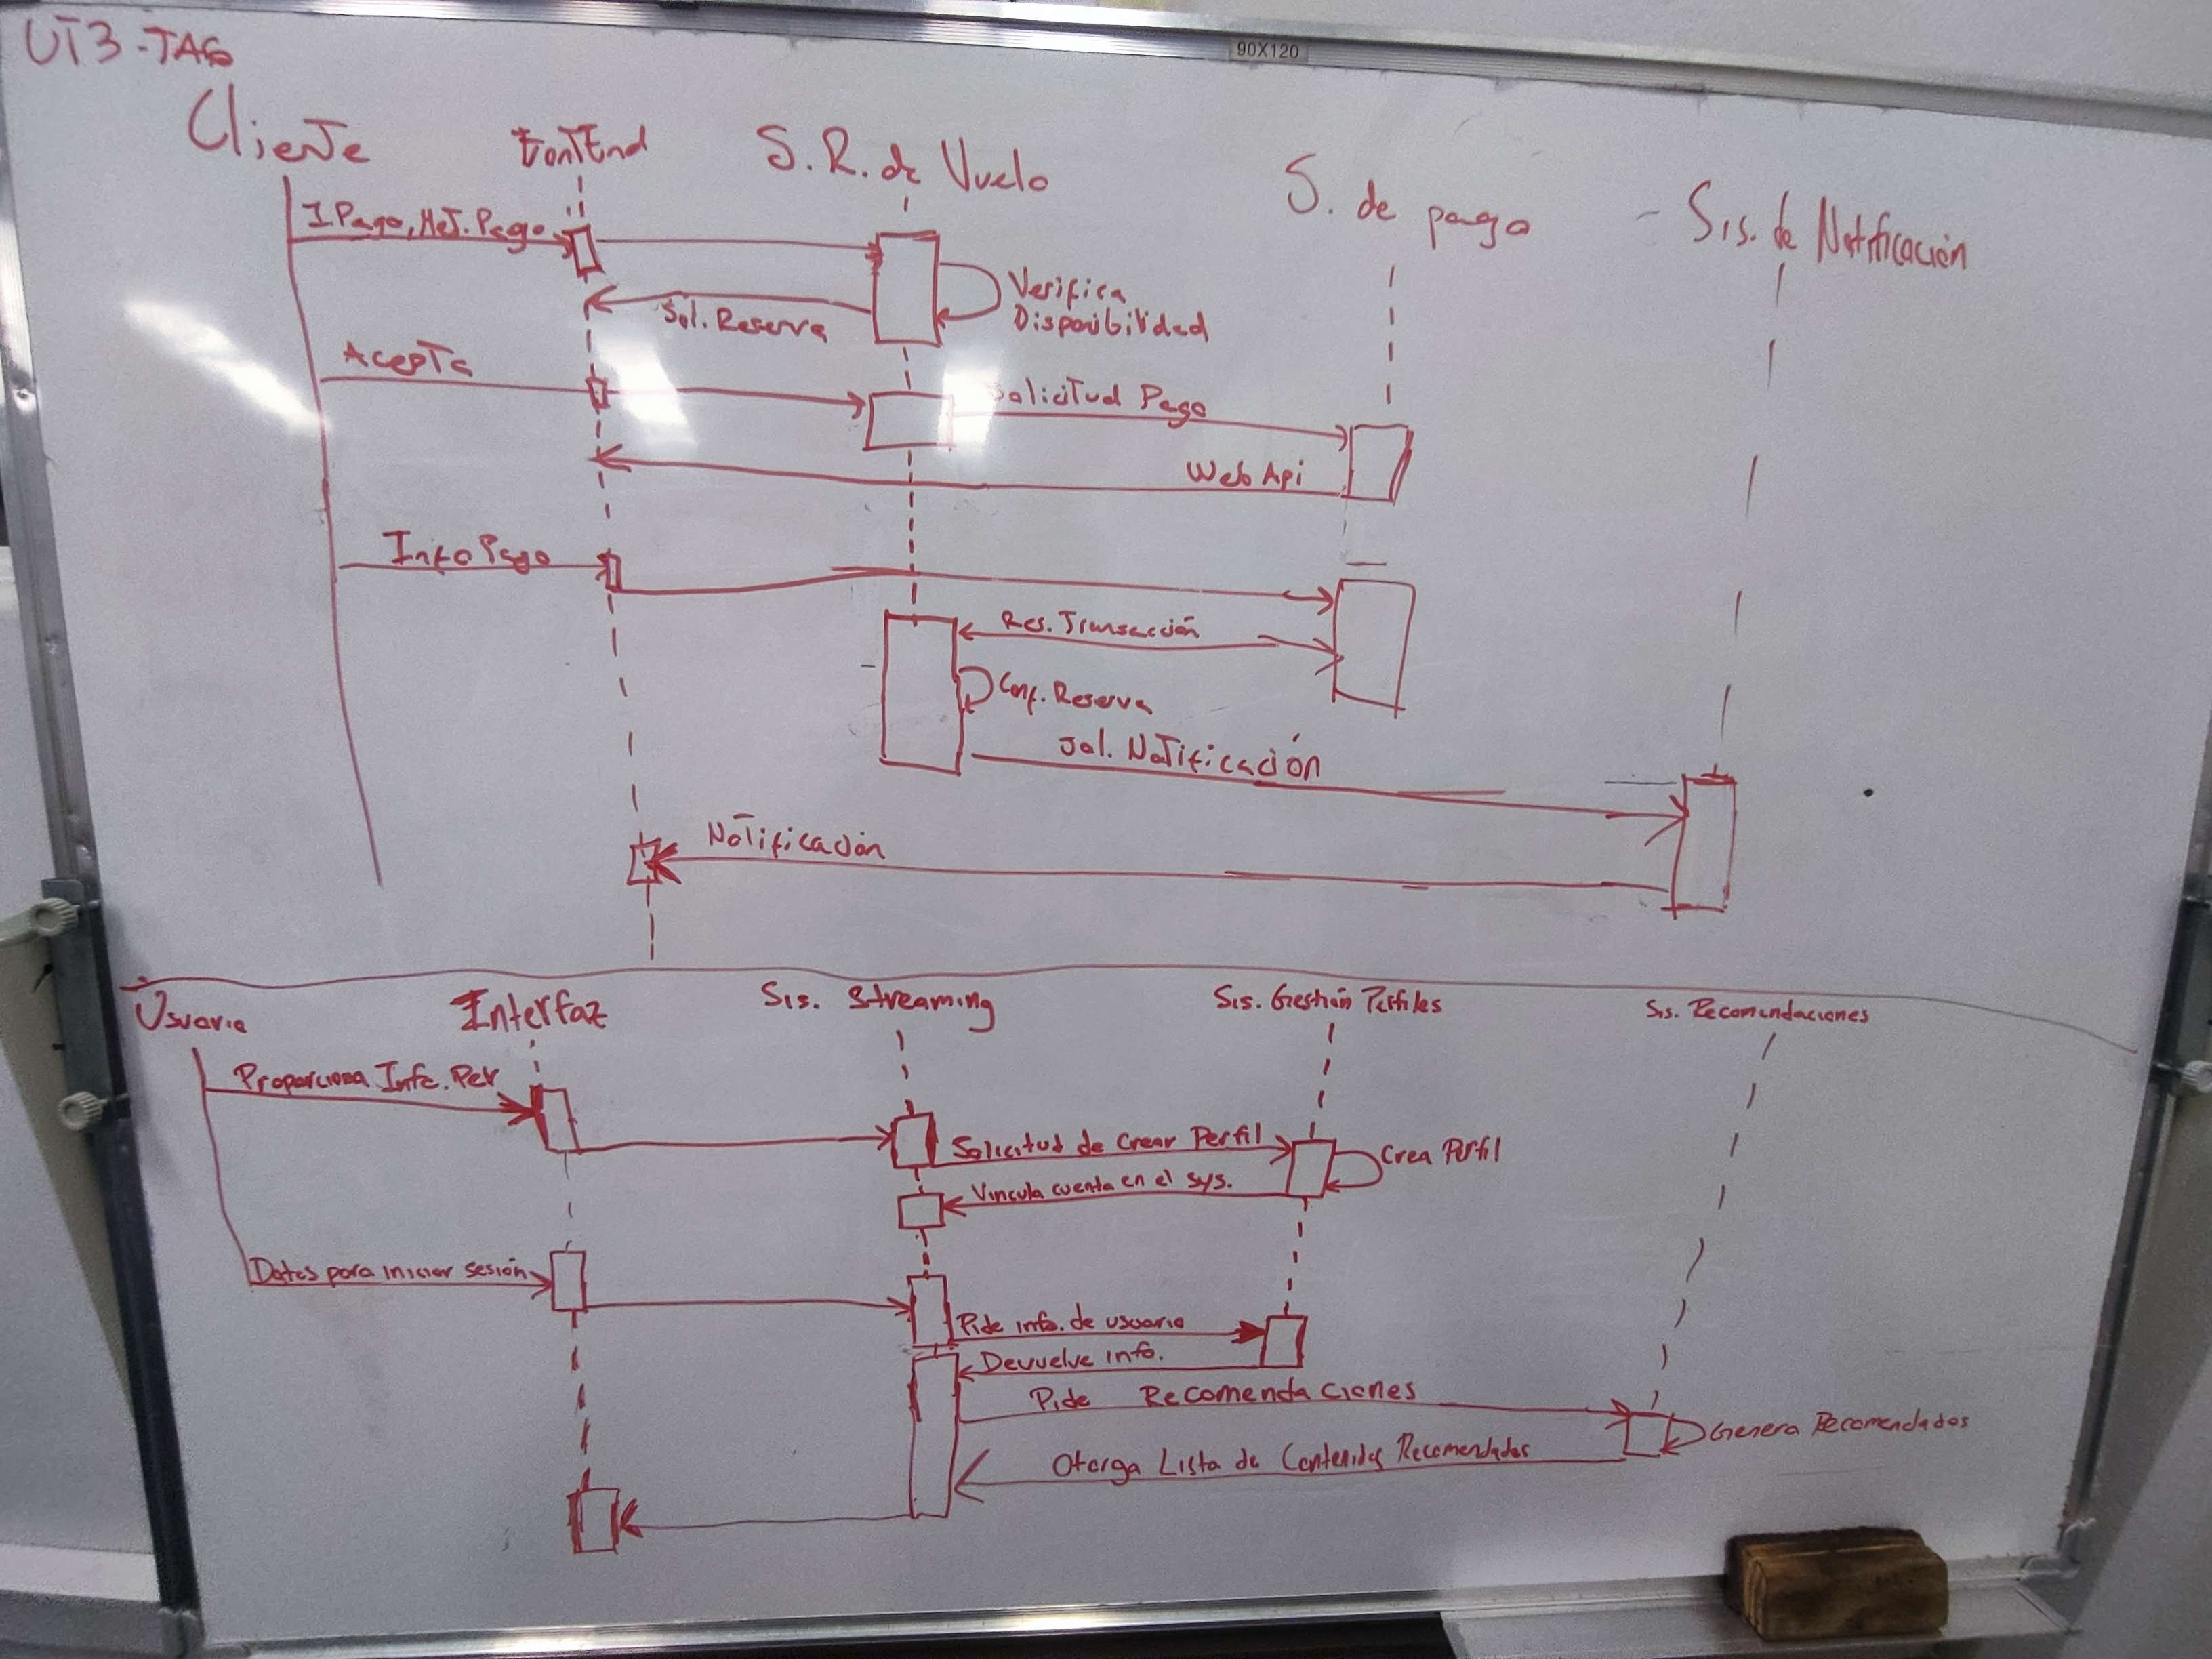 UT3-TA6
90X120
Cliente
FontEnd
S. R. de Vuelo
S. de pago
Sis. de Notificación
I Pago, Met. Pago
Verifica
Disponibilidad
Sol. Reserva
Acepta
Solicitud Pago
Web Api
Info Pago
Res. Transacción
Conf. Reserva
Sol. Notificación
Notificación
Usuario
Interfaz
Sis. Streaming
Sis. Gestión Perfiles
Sis. Recomendaciones
Proporciona Info. Per
Solicitud de Crear Perfil
Crea Perfil
Vincula cuenta en el sys.
Datos para iniciar sesión
Pide info. de usuario
Devuelve info.
Pide Recomendaciones
Genera Recomendados
Otorga Lista de Contenidos Recomendados